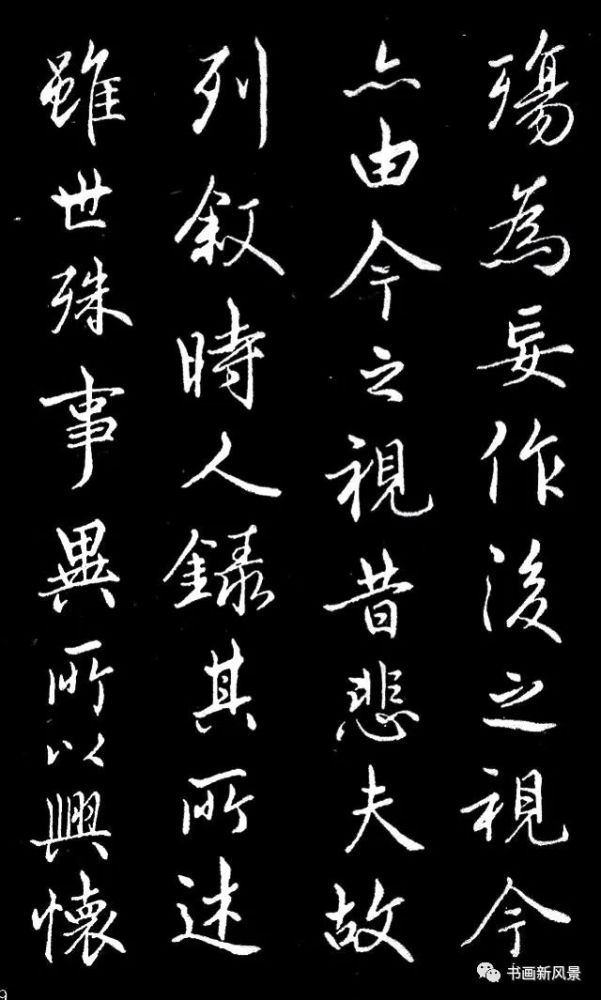 殤為妄作後之視今
亦由今之視昔悲夫故
列敘時人錄其所述
雖世殊事異所以興懷
书画新风景
9